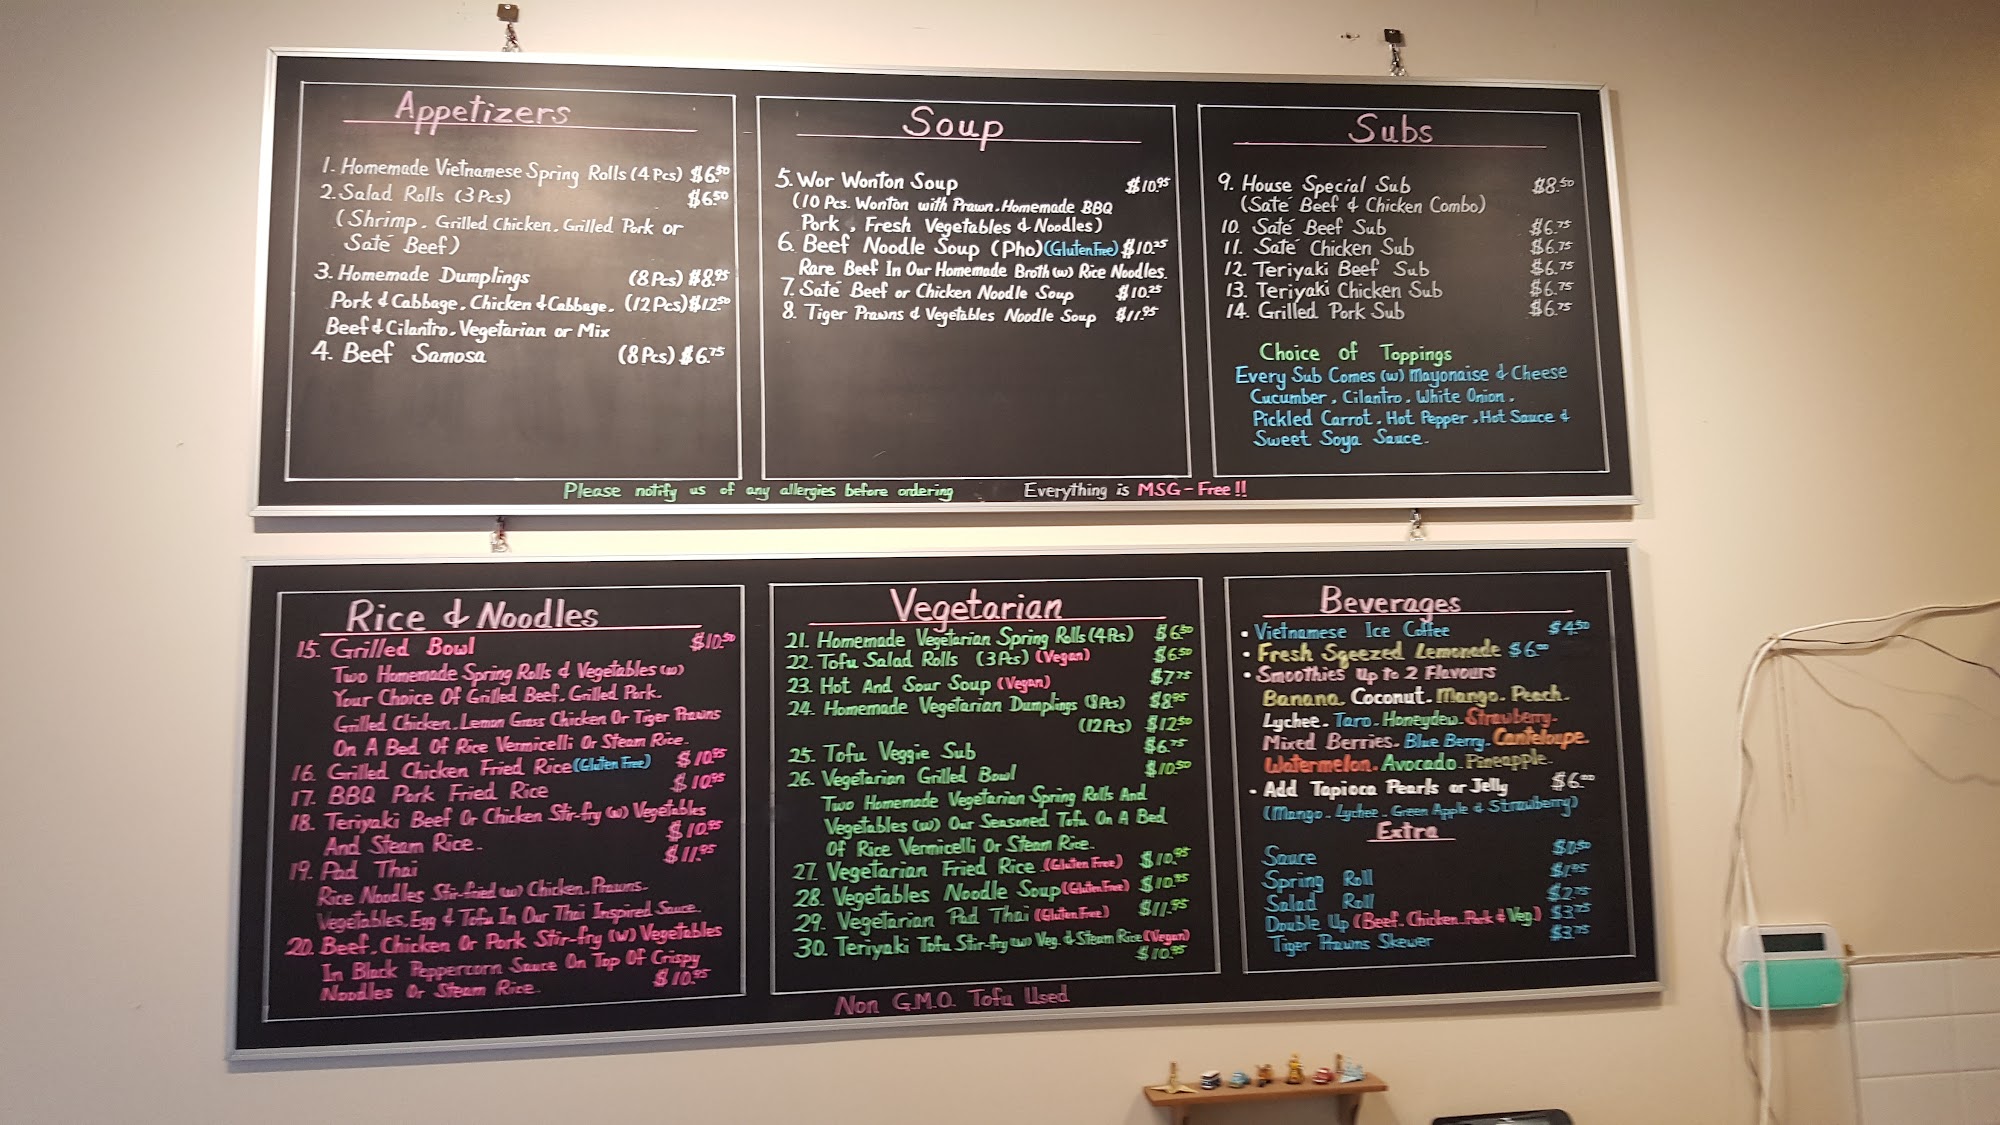 Appetizers
1. Homemade Vietnamese Spring Rolls (4 Pcs) $6.50
2. Salad Rolls (3 Pcs) $6.50
(Shrimp, Grilled Chicken, Grilled Pork or
Saté Beef)
3. Homemade Dumplings (8 Pcs) $8.95
Pork & Cabbage, Chicken & Cabbage, (12 Pcs) $12.50
Beef & Cilantro, Vegetarian or Mix
4. Beef Samosa (8 Pcs) $6.75
Soup
5. Wor Wonton Soup $10.95
(10 Pcs. Wonton with Prawn, Homemade BBQ
Pork, Fresh Vegetables & Noodles)
6. Beef Noodle Soup (Pho) (Gluten Free) $10.25
Rare Beef In Our Homemade Broth (w) Rice Noodles.
7. Saté Beef or Chicken Noodle Soup $10.25
8. Tiger Prawns & Vegetables Noodle Soup $11.95
Subs
9. House Special Sub $8.50
(Saté Beef & Chicken Combo)
10. Saté Beef Sub $6.75
11. Saté Chicken Sub $6.75
12. Teriyaki Beef Sub $6.75
13. Teriyaki Chicken Sub $6.75
14. Grilled Pork Sub $6.75
Choice of Toppings
Every Sub Comes (w) Mayonaise & Cheese
Cucumber, Cilantro, White Onion,
Pickled Carrot, Hot Pepper, Hot Sauce &
Sweet Soya Sauce.
Please notify us of any allergies before ordering Everything is MSG-Free!!
Rice & Noodles
15. Grilled Bowl $10.50
Two Homemade Spring Rolls & Vegetables (w)
Your Choice Of Grilled Beef, Grilled Pork,
Grilled Chicken, Lemon Grass Chicken Or Tiger Prawns
On A Bed Of Rice Vermicelli Or Steam Rice.
16. Grilled Chicken Fried Rice (Gluten Free) $10.95
17. BBQ Pork Fried Rice $10.95
18. Teriyaki Beef Or Chicken Stir-fry (w) Vegetables
And Steam Rice. $10.95
19. Pad Thai $11.95
Rice Noodles Stir-fried (w) Chicken, Prawns,
Vegetables, Egg & Tofu In Our Thai Inspired Sauce.
20. Beef, Chicken Or Pork Stir-fry (w) Vegetables
In Black Peppercorn Sauce On Top Of Crispy
Noodles Or Steam Rice. $10.95
Vegetarian
21. Homemade Vegetarian Spring Rolls (4 Pcs) $6.50
22. Tofu Salad Rolls (3 Pcs) (Vegan) $6.50
23. Hot And Sour Soup (Vegan) $7.75
24. Homemade Vegetarian Dumplings (8 Pcs) $8.95
(12 Pcs) $12.50
25. Tofu Veggie Sub $6.75
26. Vegetarian Grilled Bowl $10.50
Two Homemade Vegetarian Spring Rolls And
Vegetables (w) Our Seasoned Tofu On A Bed
Of Rice Vermicelli Or Steam Rice.
27. Vegetarian Fried Rice (Gluten Free) $10.95
28. Vegetables Noodle Soup (Gluten Free) $10.95
29. Vegetarian Pad Thai (Gluten Free) $11.95
30. Teriyaki Tofu Stir-fry (w) Veg. & Steam Rice (Vegan)
$10.95
Non G.M.O. Tofu Used
Beverages
• Vietnamese Ice Coffee $4.50
• Fresh Sqeezed Lemonade $6.00
• Smoothies Up to 2 Flavours
Banana, Coconut, Mango, Peach,
Lychee, Taro, Honeydew, Strawberry,
Mixed Berries, Blue Berry, Canteloupe,
Watermelon, Avocado, Pineapple.
• Add Tapioca Pearls or Jelly $6.00
(Mango, Lychee, Green Apple & Strawberry)
Extra
Sauce $0.50
Spring Roll $1.95
Salad Roll $2.75
Double Up (Beef, Chicken, Pork & Veg.) $3.75
Tiger Prawns Skewer $3.75